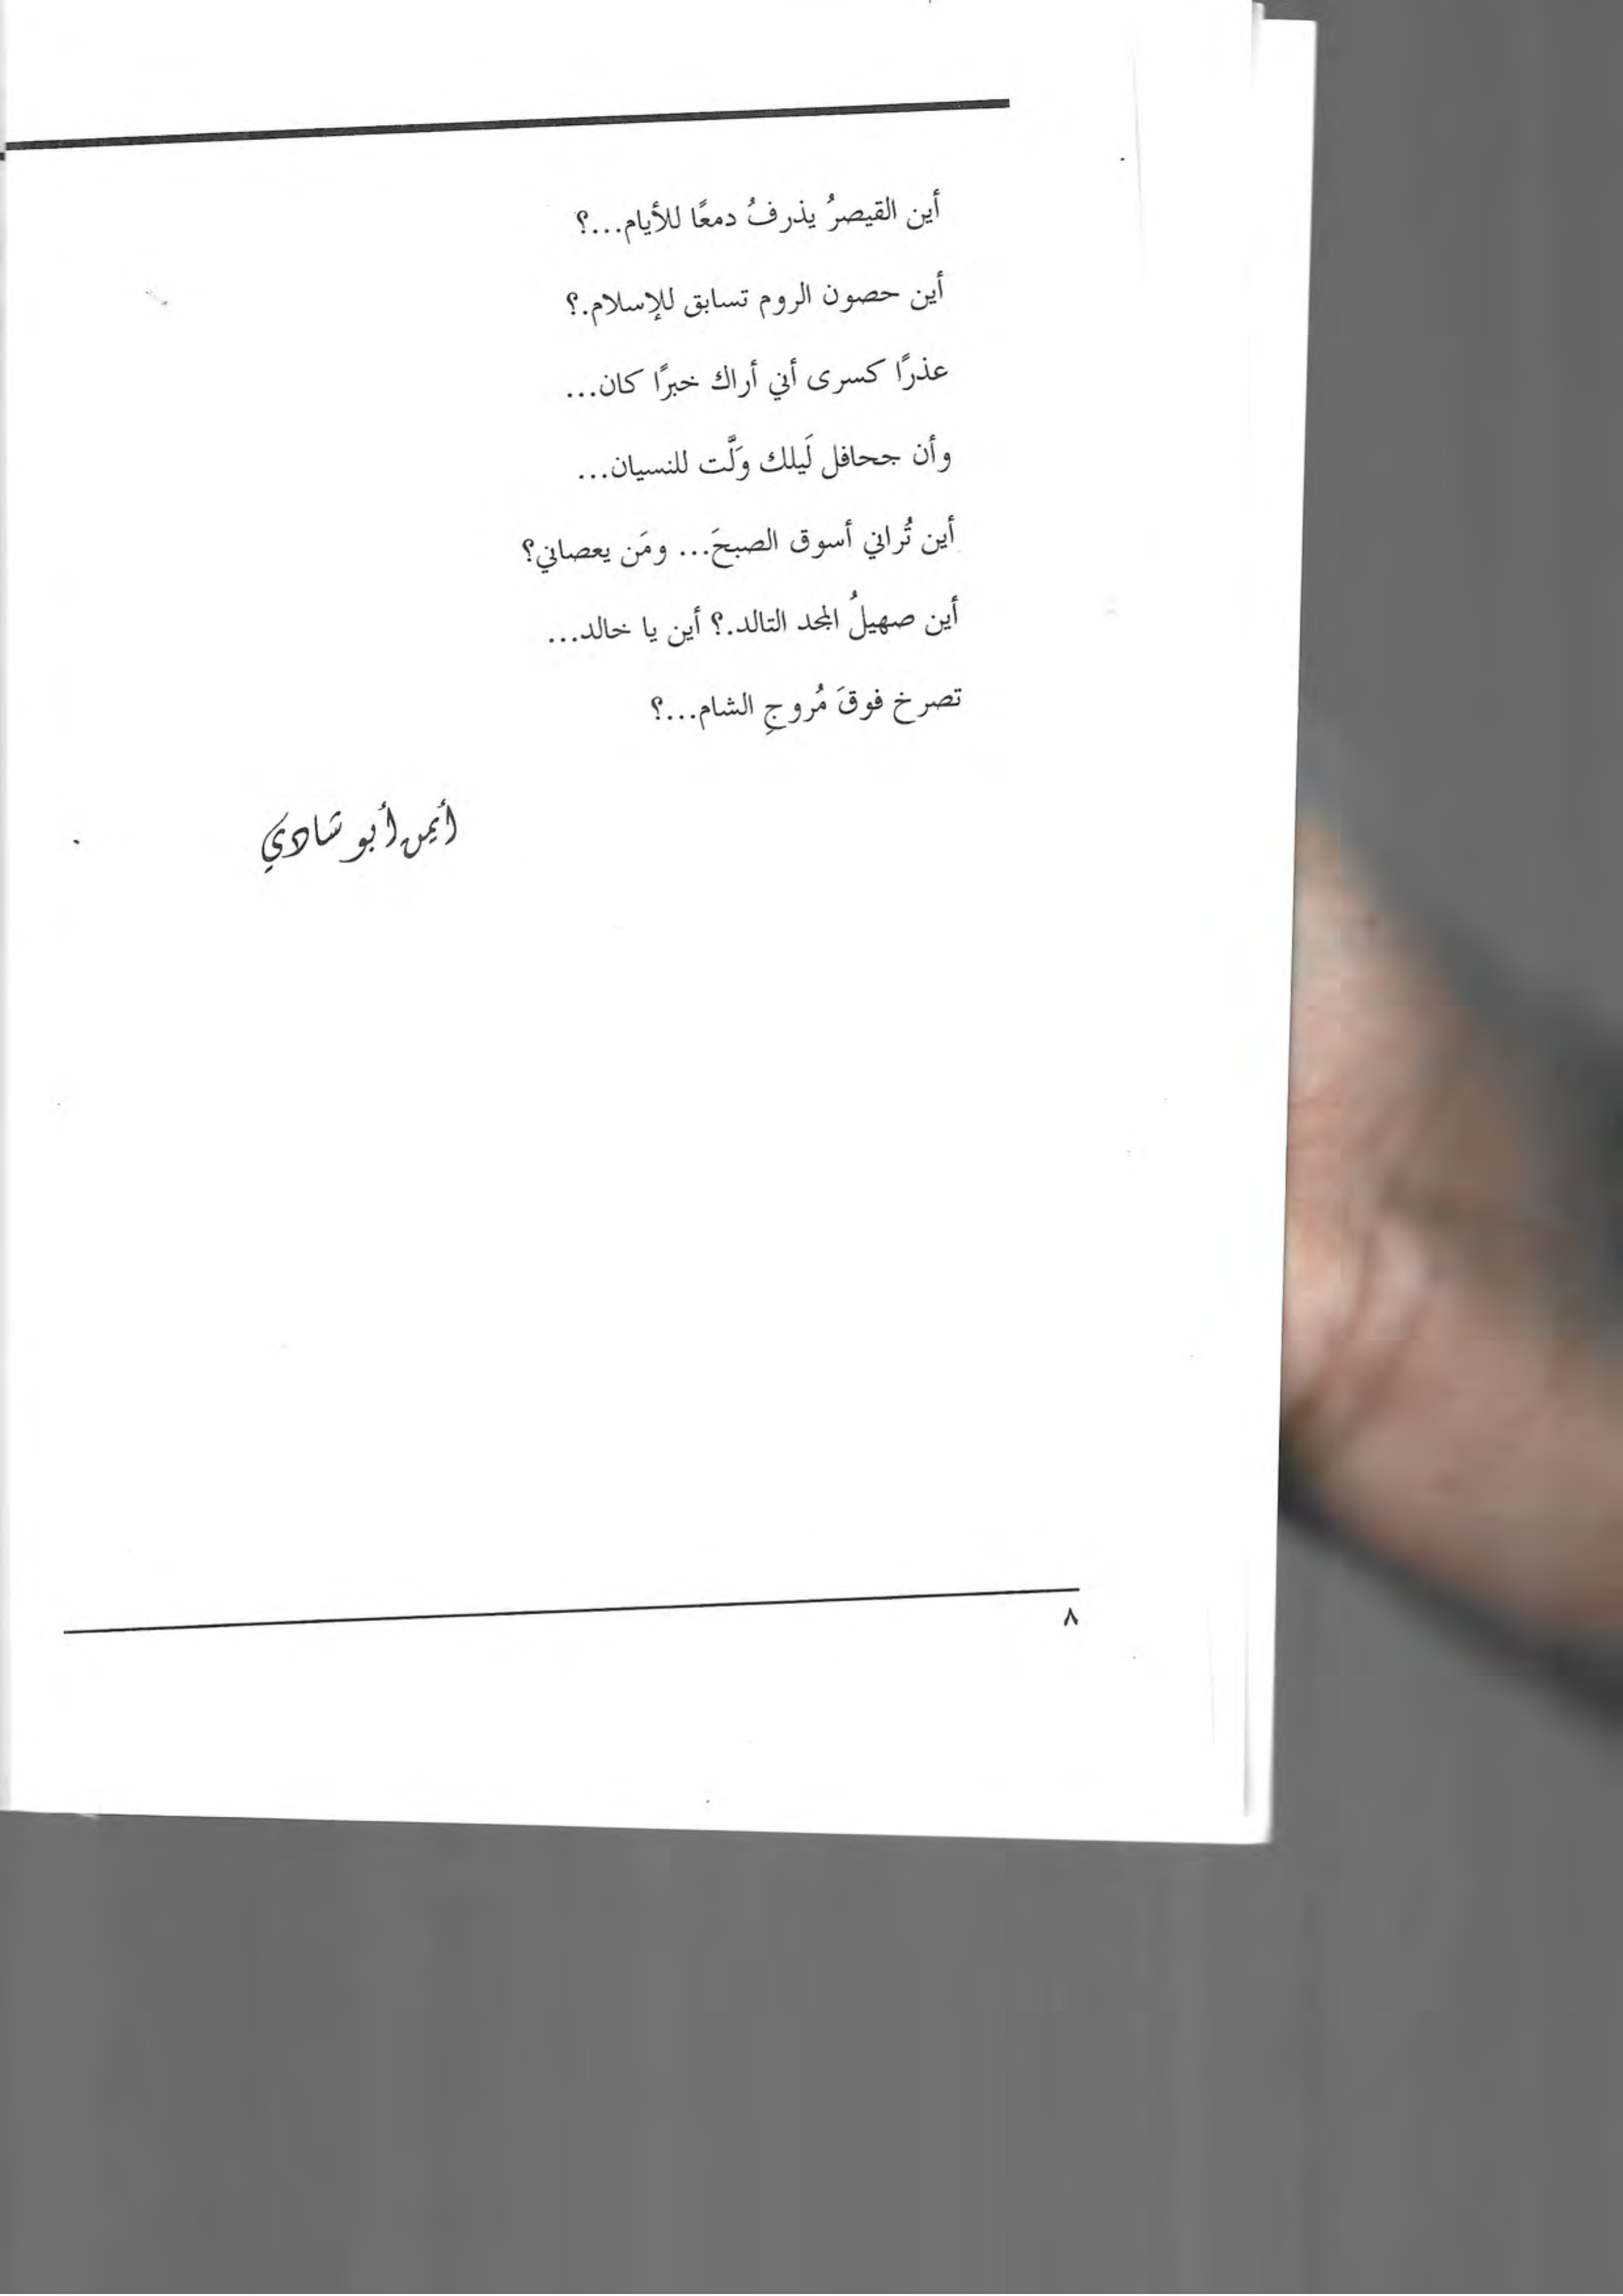 أين القيصرُ يذرفُ دمعًا للأيام...؟
أين حصون الروم تسابق للإسلام.؟
عذرًا كسرى أني أراك خبرًا كان...
وأن جحافل لَيلك وَلَّت للنسيان...
أين تُراني أسوق الصبحَ... ومَن يعصاني؟
أين صهيلُ المجد التالد.؟ أين يا خالد...
تصرخ فوقَ مُروجِ الشام...؟
أيمن أبو شادي
٨